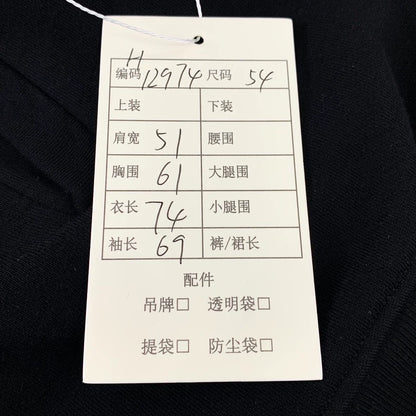 编码 H12974 尺码 54
上装 下装
肩宽 51 腰围
胸围 61 大腿围
衣长 74 小腿围
袖长 69 裤/裙长
配件
吊牌□ 透明袋□
提袋□ 防尘袋□